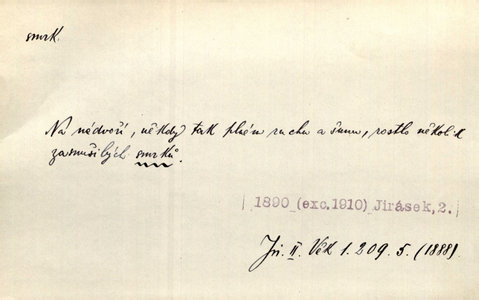 smrk.
Na nádvoří, někdy tak plném ruchu a šumu, rostlo několik
zasmušilých smrků.
1890 (exc.1910) Jirásek, 2.
Jir. II. Věk 1. 209. 5. (1888).